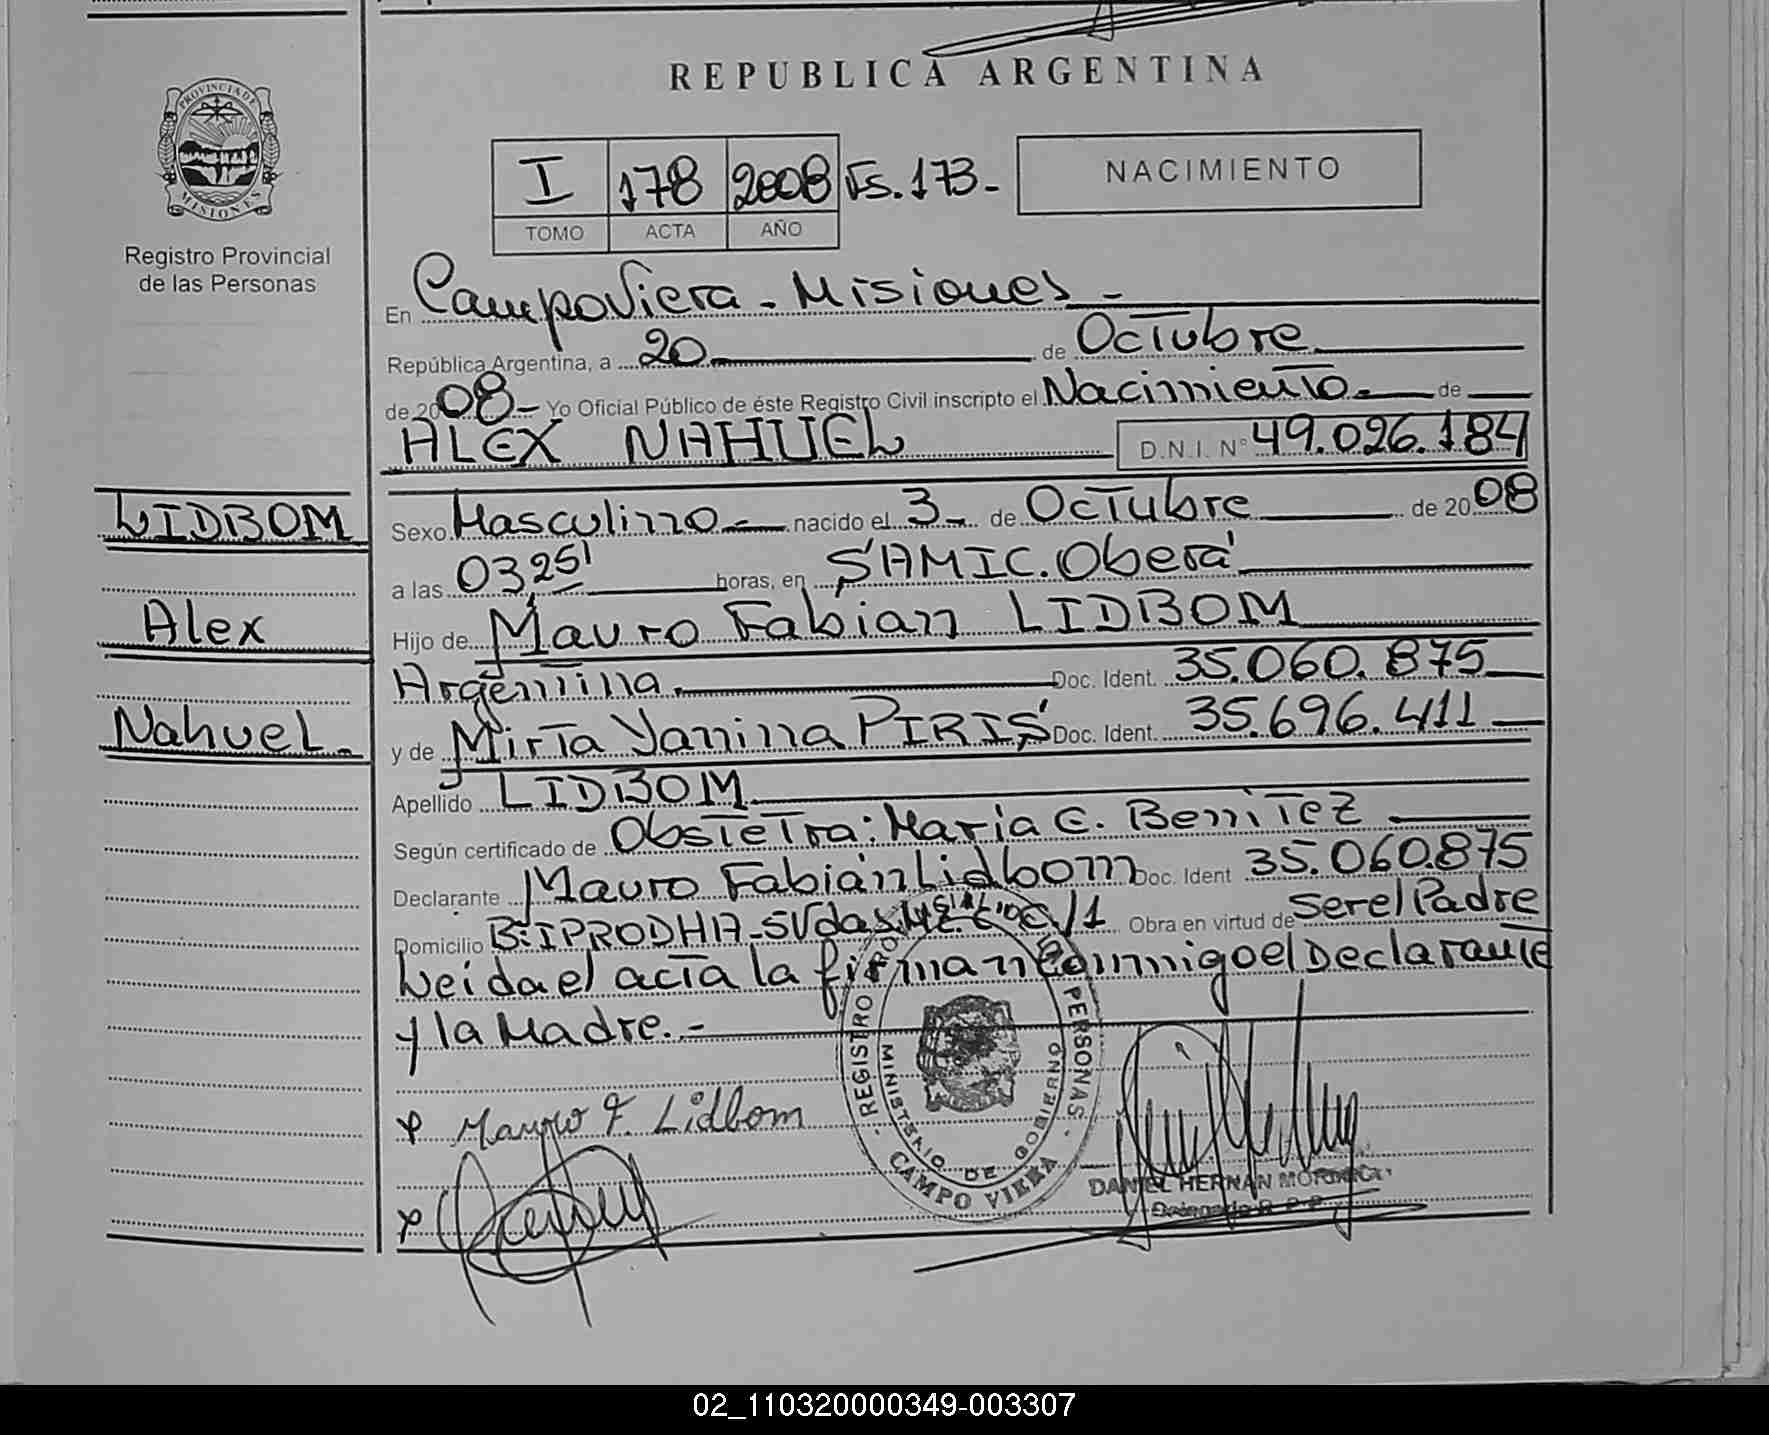 REPUBLICA ARGENTINA
PROVINCIA DE
MISIONES
Registro Provincial
de las Personas
I 178 2008 Fs. 173-
TOMO ACTA AÑO
NACIMIENTO
En CampoViera - Misiones -
República Argentina, a 20 de Octubre
de 2008- Yo Oficial Público de éste Registro Civil inscripto el Nacimiento. de
ALEX NAHUEL D.N.I. Nº 49.026.184
LIDBOM
Sexo Masculino - nacido el 3- de Octubre de 2008
a las 03,25' horas, en SAMIC. Oberá
Alex
Hijo de Mauro Fabian LIDBOM
Argentina. Doc. Ident. 35.060.875
Nahuel -
y de Mirta Yanina PIRIS Doc. Ident. 35.696.411
Apellido LIDBOM
Según certificado de Obstetra: Maria E. Benitez
Declarante Mauro Fabián Lidbom Doc. Ident 35.060.875
Domicilio B: IPRODHA - /1 Obra en virtud de ser el Padre
Leida el acta la firman conmigo el Declarante
y la Madre. -
Mauro F. Lidbom
REGISTRO PERSONAS
MINISTERIO DE GOBIERNO
CAMPO VIERA
DANIEL HERNAN
Delegado R. P. P.
02_110320000349-003307